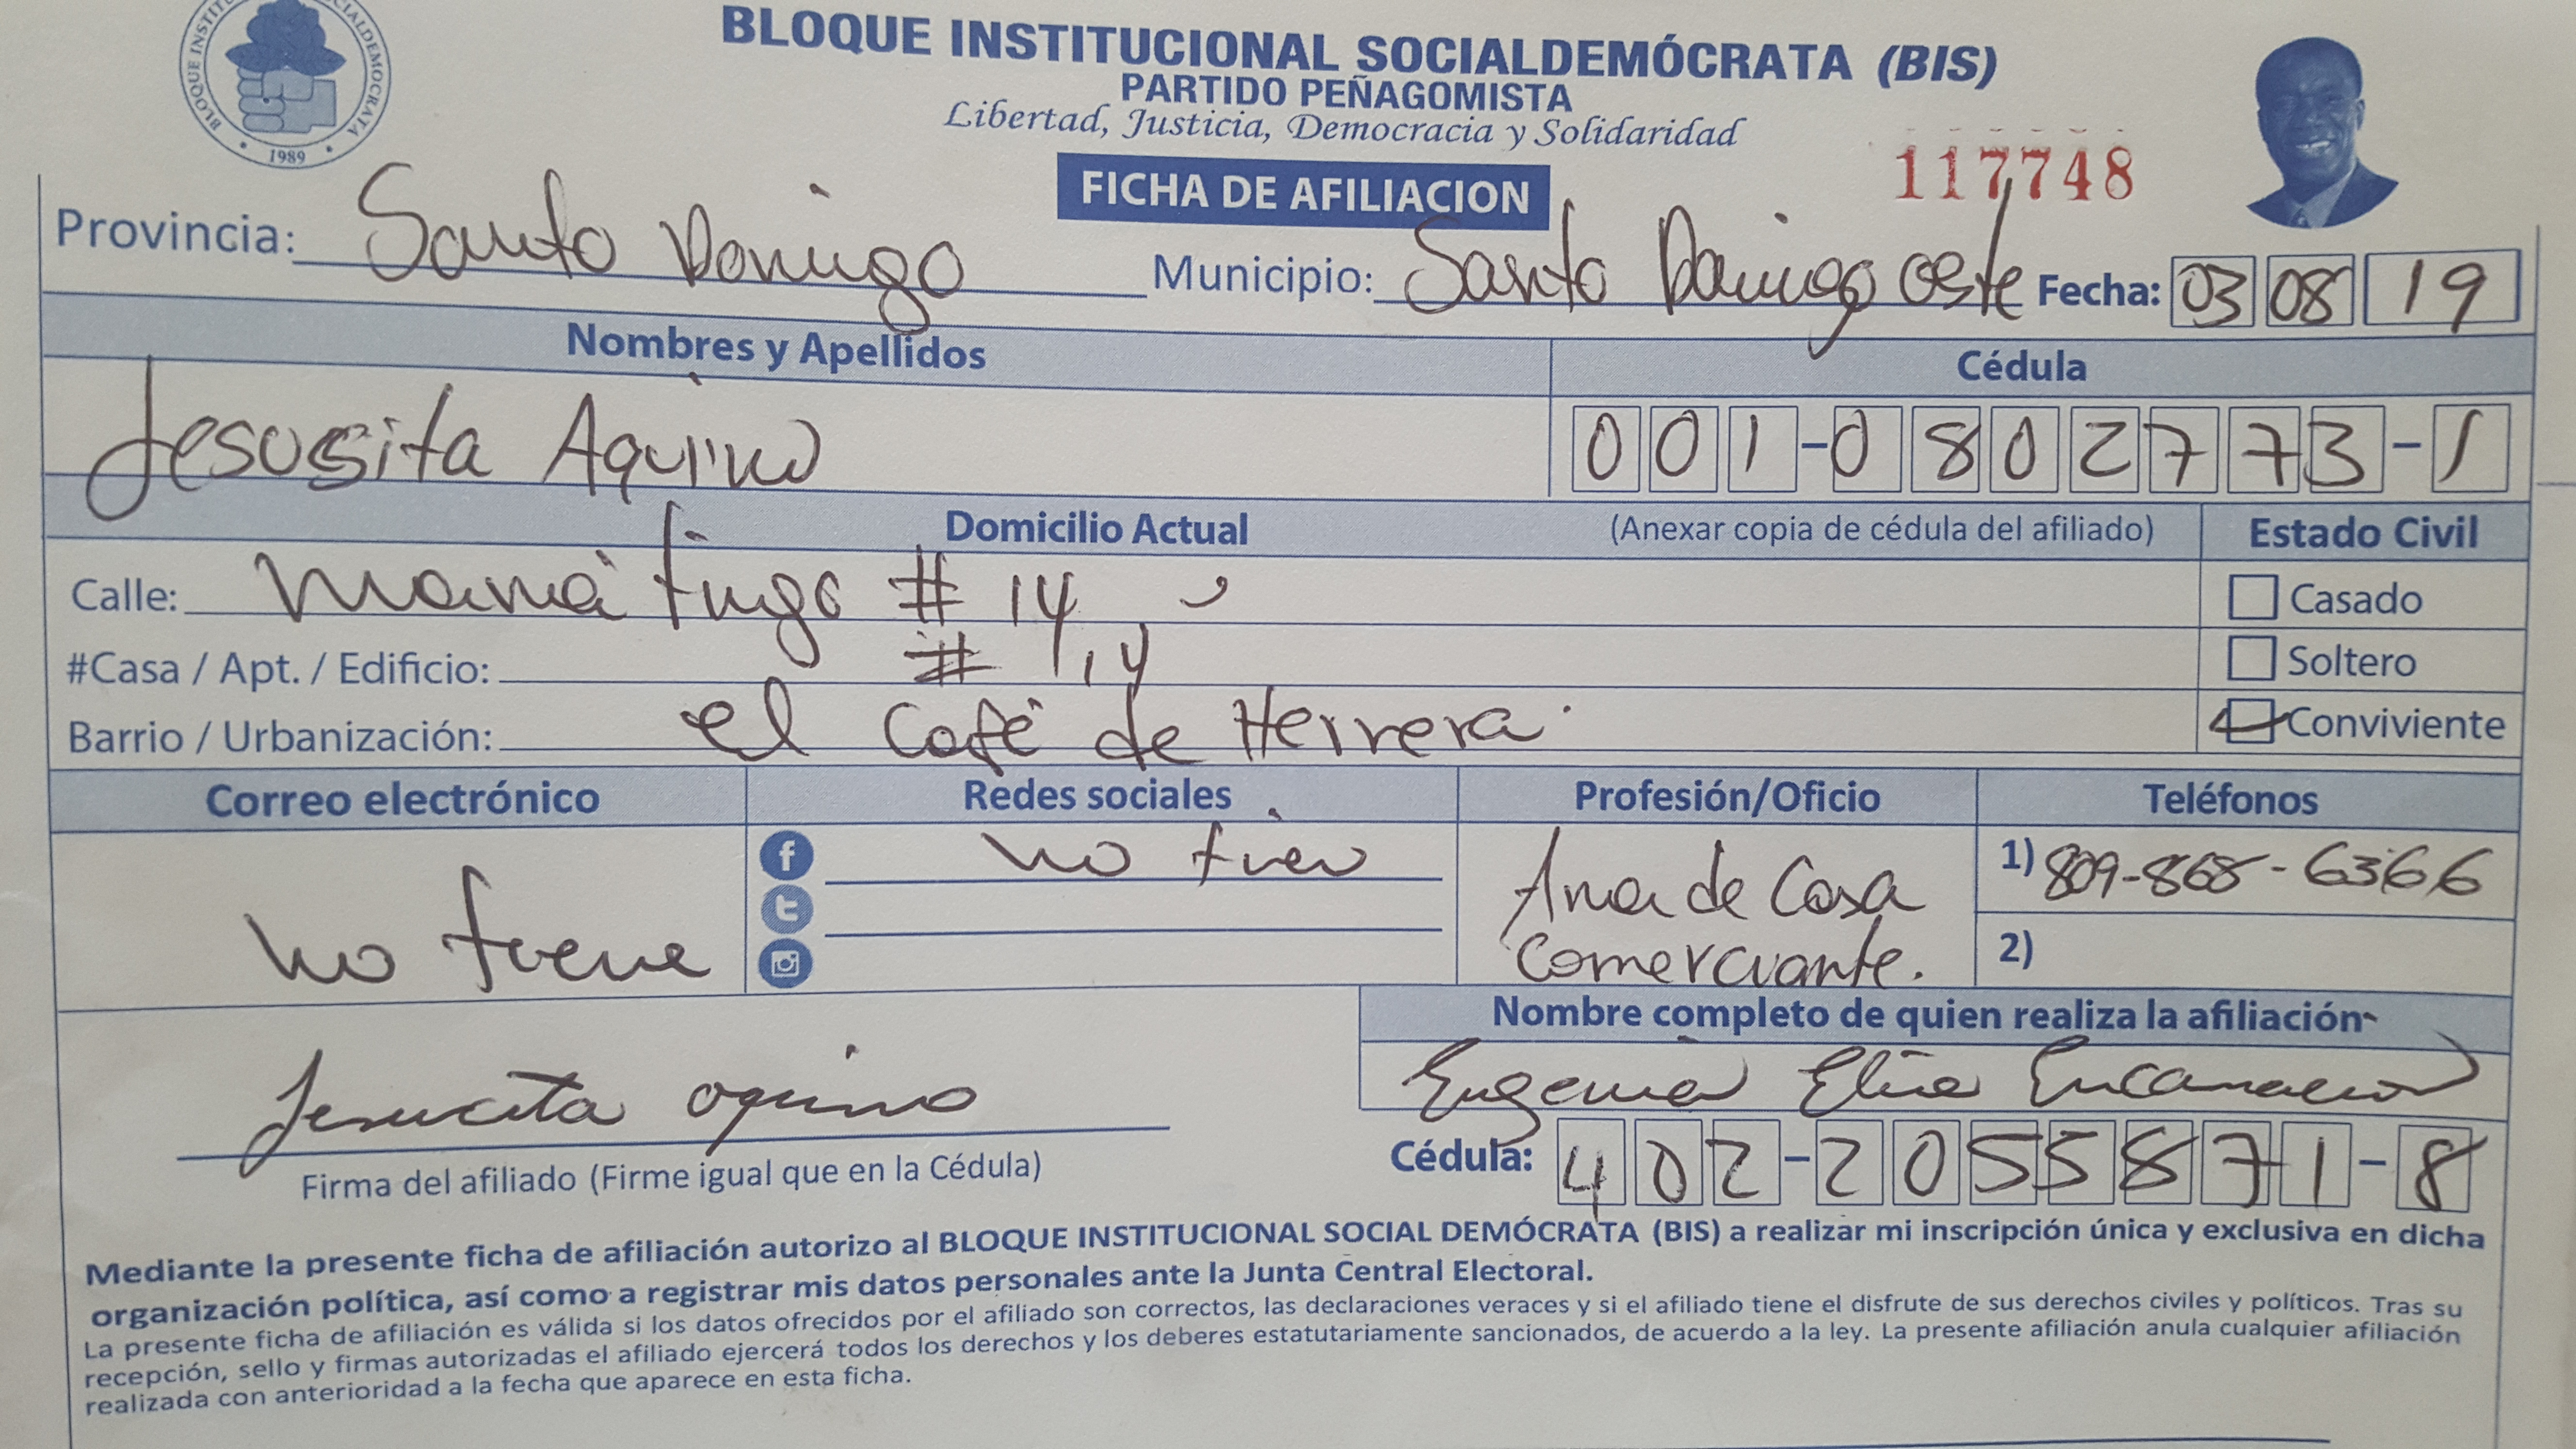 BLOQUE INSTITUCIONAL SOCIALDEMÓCRATA (BIS)
PARTIDO PEÑAGOMISTA
Libertad, Justicia, Democracia y Solidaridad
1989
FICHA DE AFILIACION
117748
Provincia: Santo Domingo Municipio: Santo Domingo oeste Fecha: 03 08 19
Nombres y Apellidos Cédula
Jesusita Aquino 001-0802773-1
Domicilio Actual (Anexar copia de cédula del afiliado) Estado Civil
Calle: mamá Tingo # 14 Casado
#Casa / Apt. / Edificio: # 14 Soltero
Barrio / Urbanización: el Café de Herrera. Conviviente
Correo electrónico Redes sociales Profesión/Oficio Teléfonos
no tiene no tien Ama de Casa 1) 809-868-6366
Comerciante. 2)
Nombre completo de quien realiza la afiliación
Jesucita aquino Eugenia Elia Encarnacion
Firma del afiliado (Firme igual que en la Cédula) Cédula: 402-2055871-8
Mediante la presente ficha de afiliación autorizo al BLOQUE INSTITUCIONAL SOCIAL DEMÓCRATA (BIS) a realizar mi inscripción única y exclusiva en dicha
organización política, así como a registrar mis datos personales ante la Junta Central Electoral.
La presente ficha de afiliación es válida si los datos ofrecidos por el afiliado son correctos, las declaraciones veraces y si el afiliado tiene el disfrute de sus derechos civiles y políticos. Tras su
recepción, sello y firmas autorizadas el afiliado ejercerá todos los derechos y los deberes estatutariamente sancionados, de acuerdo a la ley. La presente afiliación anula cualquier afiliación
realizada con anterioridad a la fecha que aparece en esta ficha.